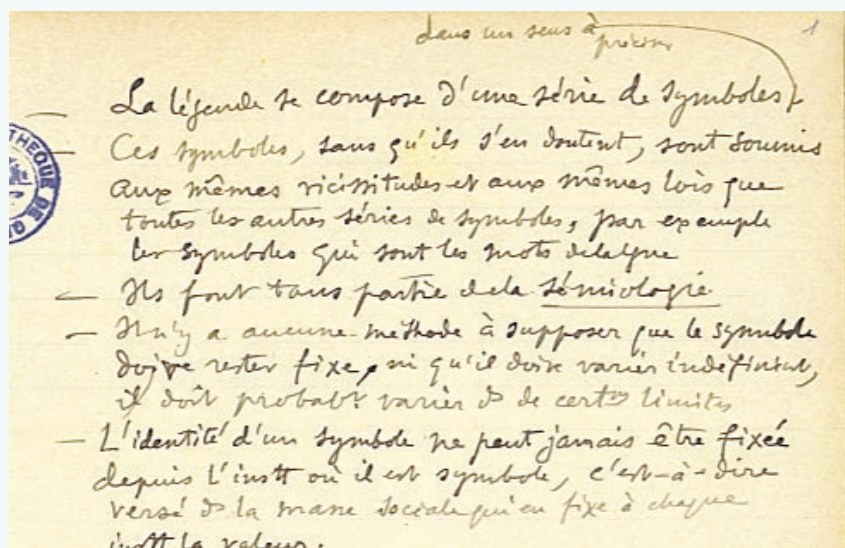 dans un sens à
préciser
1
— La légende se compose d'une série de symboles,
— Ces symboles, sans qu'ils s'en doutent, sont soumis
aux mêmes vicissitudes et aux mêmes lois que
toutes les autres séries de symboles, par exemple
les symboles qui sont les mots de la lgue
— Ils font tous partie de la sémiologie.
— Il n'y a aucune méthode à supposer que le symbole
doive rester fixe, ni qu'il doive varier indéfiniment,
il doit probabt varier ds de certes limites
— L'identité d'un symbole ne peut jamais être fixée
depuis l'instt où il est symbole, c'est-à-dire
versé ds la masse sociale qui en fixe à chaque
instt la valeur.
THEQUE DE G